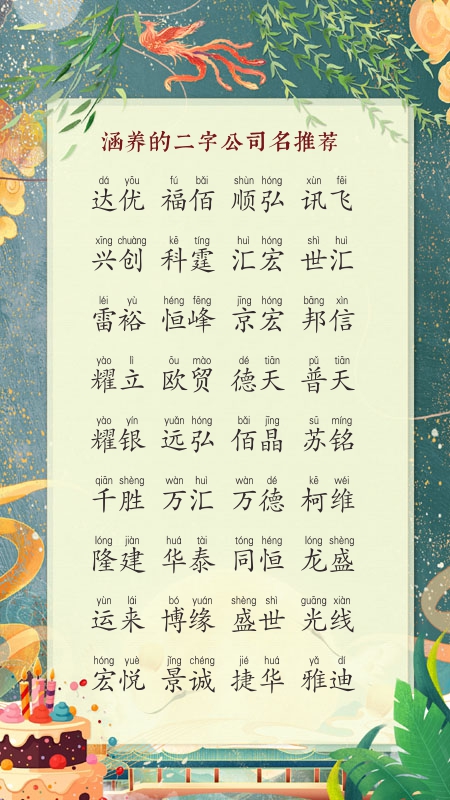 涵养的二字公司名推荐
dá yōu fú bǎi shùn hóng xùn fēi
达优 福佰 顺弘 讯飞
xīng chuàng kē tíng huì hóng shì huì
兴创 科霆 汇宏 世汇
léi yù héng fēng jīng hóng bāng xìn
雷裕 恒峰 京宏 邦信
yào lì ōu mào dé tiān pǔ tiān
耀立 欧贸 德天 普天
yào yín yuǎn hóng bǎi jīng sū míng
耀银 远弘 佰晶 苏铭
qiān shèng wàn huì wàn dé kē wéi
千胜 万汇 万德 柯维
lóng jiàn huá tài tóng héng lóng shèng
隆建 华泰 同恒 龙盛
yùn lái bó yuán shèng shì guāng xiàn
运来 博缘 盛世 光线
hóng yuè jǐng chéng jié huá yǎ dí
宏悦 景诚 捷华 雅迪